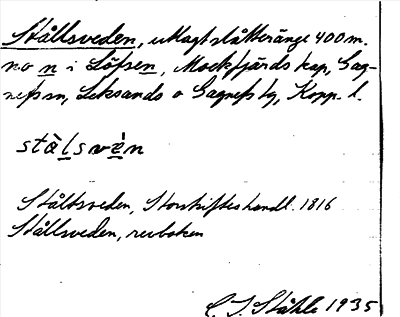 Stållsveden, utlagt slåtteränge 400 m.
no n i Löfsen, Mockfjärds kap, Gag-
nefs sn, Leksands o Gagnefs tg, Kopp. l.
stàlsvén
Stålbsveden, Storskifteshandl. 1816
Stållsveden, revboken
C. I. Ståhle 1935